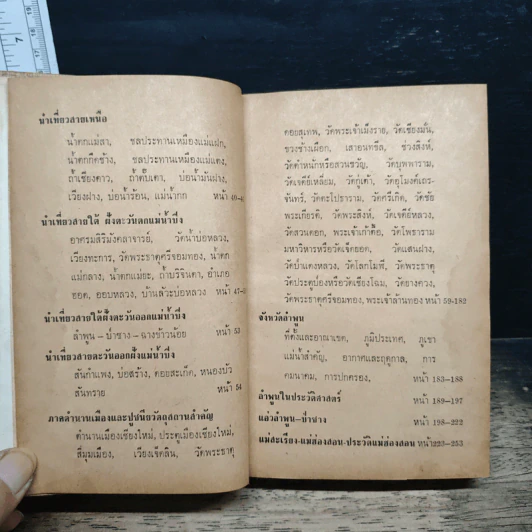 นำเที่ยวสายเหนือ
น้ำตกแม่สา, ชลประทานเหมืองแม่แฝก,
น้ำตกกึดช้าง, ชลประทานเหมืองแม่แตง,
ถ้ำเชียงดาว, ถ้ำตับเตา, บ่อน้ำมันฝาง,
เวียงฝาง, บ่อน้ำร้อน, แม่น้ำกก หน้า
นำเที่ยวสายใต้ ฝั่งตะวันตกแม่น้ำปิง
อาศรมสิริมังคลาจารย์, วัดน้ำบ่อหลวง,
เวียงทะการ, วัดพระธาตุศรีจอมทอง, น้ำตก
แม่กลาง, น้ำตกแม่ยะ, ถ้ำบริจินดา, อำเภอ
ฮอด, ออบหลวง, บ้านลัวะบ่อหลวง หน้า 47-
นำเที่ยวสายใต้ฝั่งตะวันออกแม่น้ำปิง
ลำพูน – ป่าซาง – ฉางข้าวน้อย หน้า 53
นำเที่ยวสายตะวันออกฝั่งแม่น้ำปิง
สันกำแพง, บ่อสร้าง, ดอยสะเก็ด, หนองบัว
สันทราย หน้า 54
ภาคตำนานเมืองและปูชนียวัตถุสถานสำคัญ
ตำนานเมืองเชียงใหม่, ประตูเมืองเชียงใหม่,
สี่มุมเมือง, เวียงเจ็ดลิน, วัดพระธาตุ
ดอยสุเทพ, วัดพระเจ้าเม็งราย, วัดเชียงมั่น,
ข่วงช้างเผือก, เสาอินทขีล, ข่วงสิงห์,
วัดตำหนักหรือสวนขวัญ, วัดบุพพาราม,
วัดเจดีย์เหลี่ยม, วัดกู่เต้า, วัดอุโมงค์เถร-
จันทร์, วัดตะโปธาราม, วัดศรีเกิด, วัดชัย
พระเกียรติ, วัดพระสิงห์, วัดเจดีย์หลวง,
วัดสวนดอก, พระเจ้าเก้าตื้อ, วัดโพธาราม
มหาวิหารหรือวัดเจ็ดยอด, วัดแสนฝาง,
วัดป่าแดงหลวง, วัดโลกโมฬี, วัดพระธาตุ
วัดประตูป่องหรือวัดเชียงโฉม, วัดยางควง,
วัดพระธาตุศรีจอมทอง, พระเจ้าล้านทอง หน้า 59-182
จังหวัดลำพูน
ที่ตั้งและอาณาเขต, ภูมิประเทศ, ภูเขา
แม่น้ำสำคัญ, อากาศและฤดูกาล, การ
คมนาคม, การปกครอง, หน้า 183–188
ลำพูนในประวัติศาสตร์ หน้า 189–197
แอ่วลำพูน-ป่าซาง หน้า 198–222
แม่สะเรียง-แม่ฮ่องสอน-ประวัติแม่ฮ่องสอน หน้า 223–253